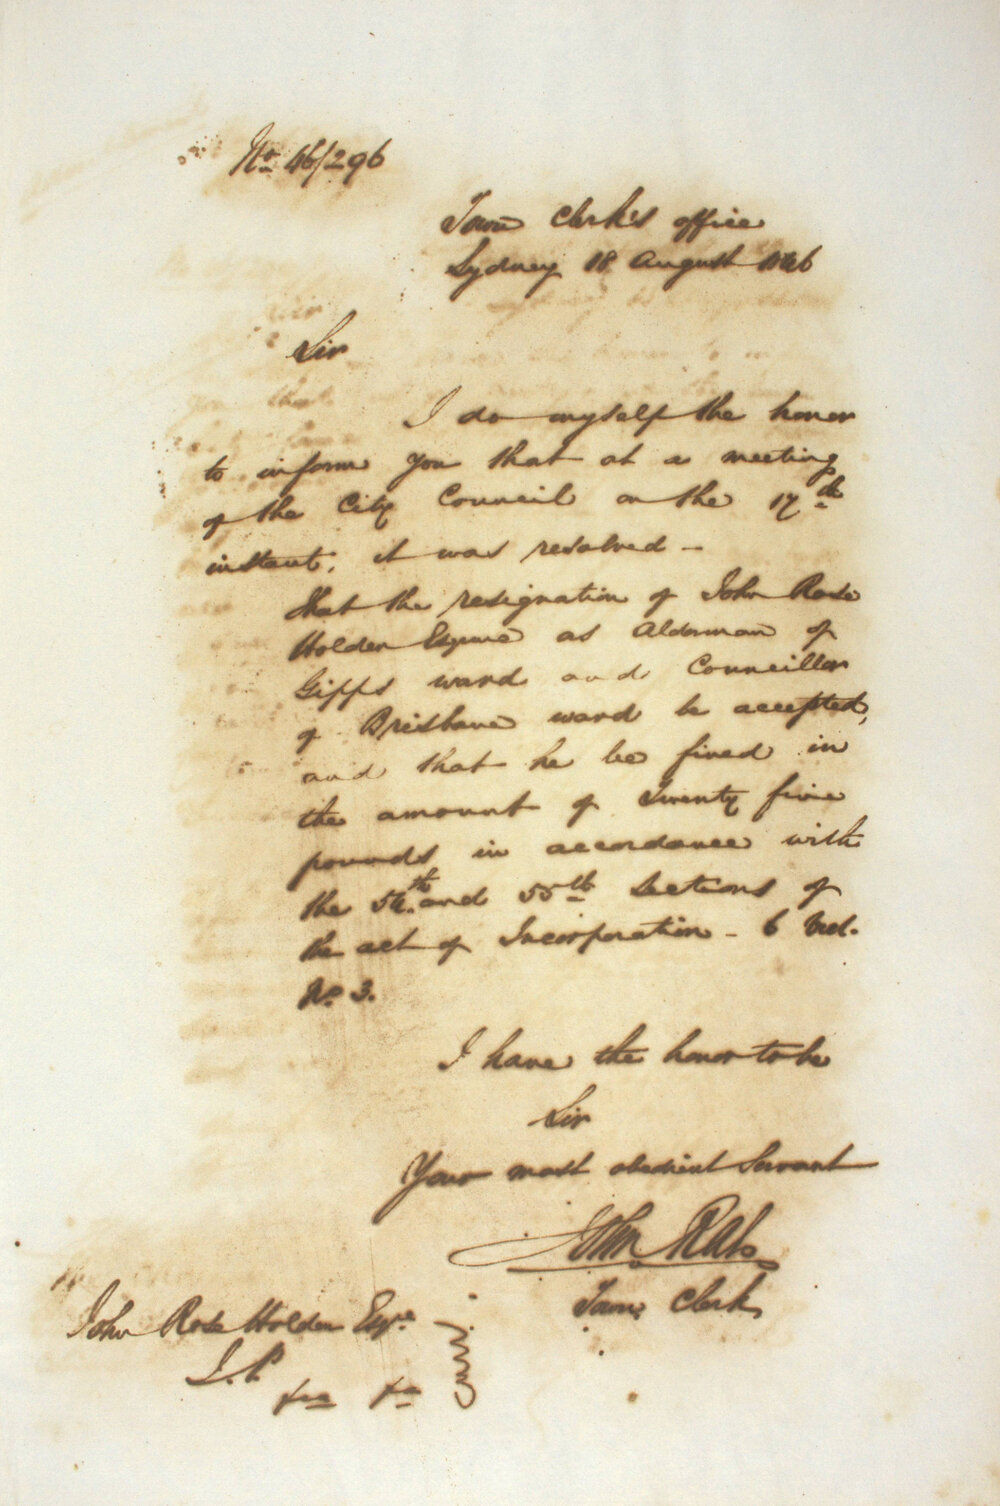 No. 46/296
Town Clerk's office
Sydney 18 August 1846
Sir
I do myself the honor
to inform you that at a meeting
of the City Council on the 17th
instant, it was resolved –
that the resignation of John Rose
Holden Esquire as Alderman of
Gipps ward and Councillor
of Brisbane ward be accepted,
and that he be fined in
the amount of Twenty five
pounds in accordance with
the 54th and 55th Sections of
the act of Incorporation – 6 Vict.
No 3.
I have the honor to be
Sir
Your most obedient Servant
John Rae
Town Clerk
John Rose Holden Esqre.
J.P.